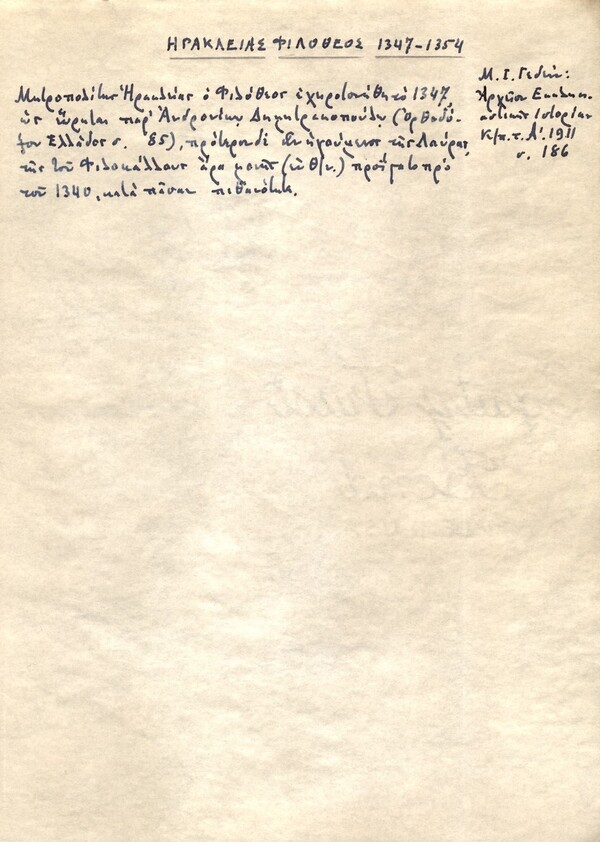 ΗΡΑΚΛΕΙΑΣ ΦΙΛΟΘΕΟΣ 1347-1354
Μητροπολίτης Ἡρακλείας ὁ Φιλόθεος ἐχειροτονήθη τὸ 1347,
ὡς εἴρηται παρ' Ἀνδρονίκου Δημητρακοπούλου (Ὀρθοδό-
ξου Ἑλλάδος σ. 85), πρότερον δὲ ἦν ἡγούμενος τῆς Λαύρας,
τῆς τοῦ Φιλοκάλλους ἄρα μονῆς (ἐν Θ/ν.) προΐστατο πρὸ
τοῦ 1340, κατὰ πᾶσαν πιθανότητα.
Μ. Ι. Γεδεών:
Ἀρχεῖον Ἐκκλησι-
αστικῆς Ἱστορίας
Κ/π. τ. Α΄. 1911
σ. 186